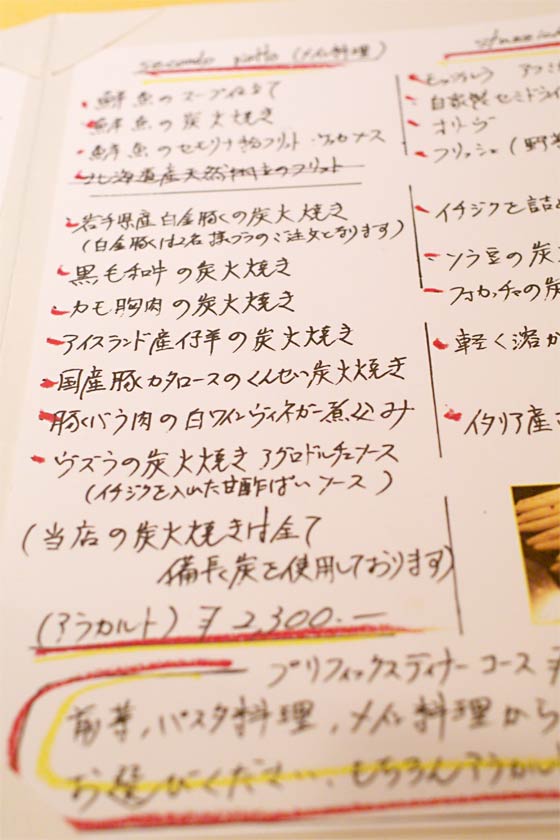 secondo piatto (メイン料理)
・鮮魚のスープ仕立て
・鮮魚の炭火焼き
・鮮魚のセモリナ粉フリット
・北海道産天然の フリット
・岩手県産白金豚くの炭火焼き
(白金豚くは2名様プラのご注文となります)
・黒毛和牛の炭火焼き
・カモ胸肉の炭火焼き
・アイスランド産仔羊の炭火焼き
・国産豚カタロースのくんせい炭火焼き
・豚くバラ肉の白ワインヴィネガー煮込み
・ウズラの炭火焼き アグロドルチェソース
(イチジクを入れた甘酢ぱいソース)
(当店の炭火焼きは全て
備長炭を使用しております)
(アラカルト) ¥2,300.—
プリフィックスディナーコース ¥
前菜, パスタ料理, メイン料理から
お選びください. もちろんアラカル
・自家製セミドライ
・オリーヴ
・フリッシェ(野菜
・イチジクを詰め
・ソラ豆の炭
・フォカッチャの炭
・軽く溶か
・イタリア産